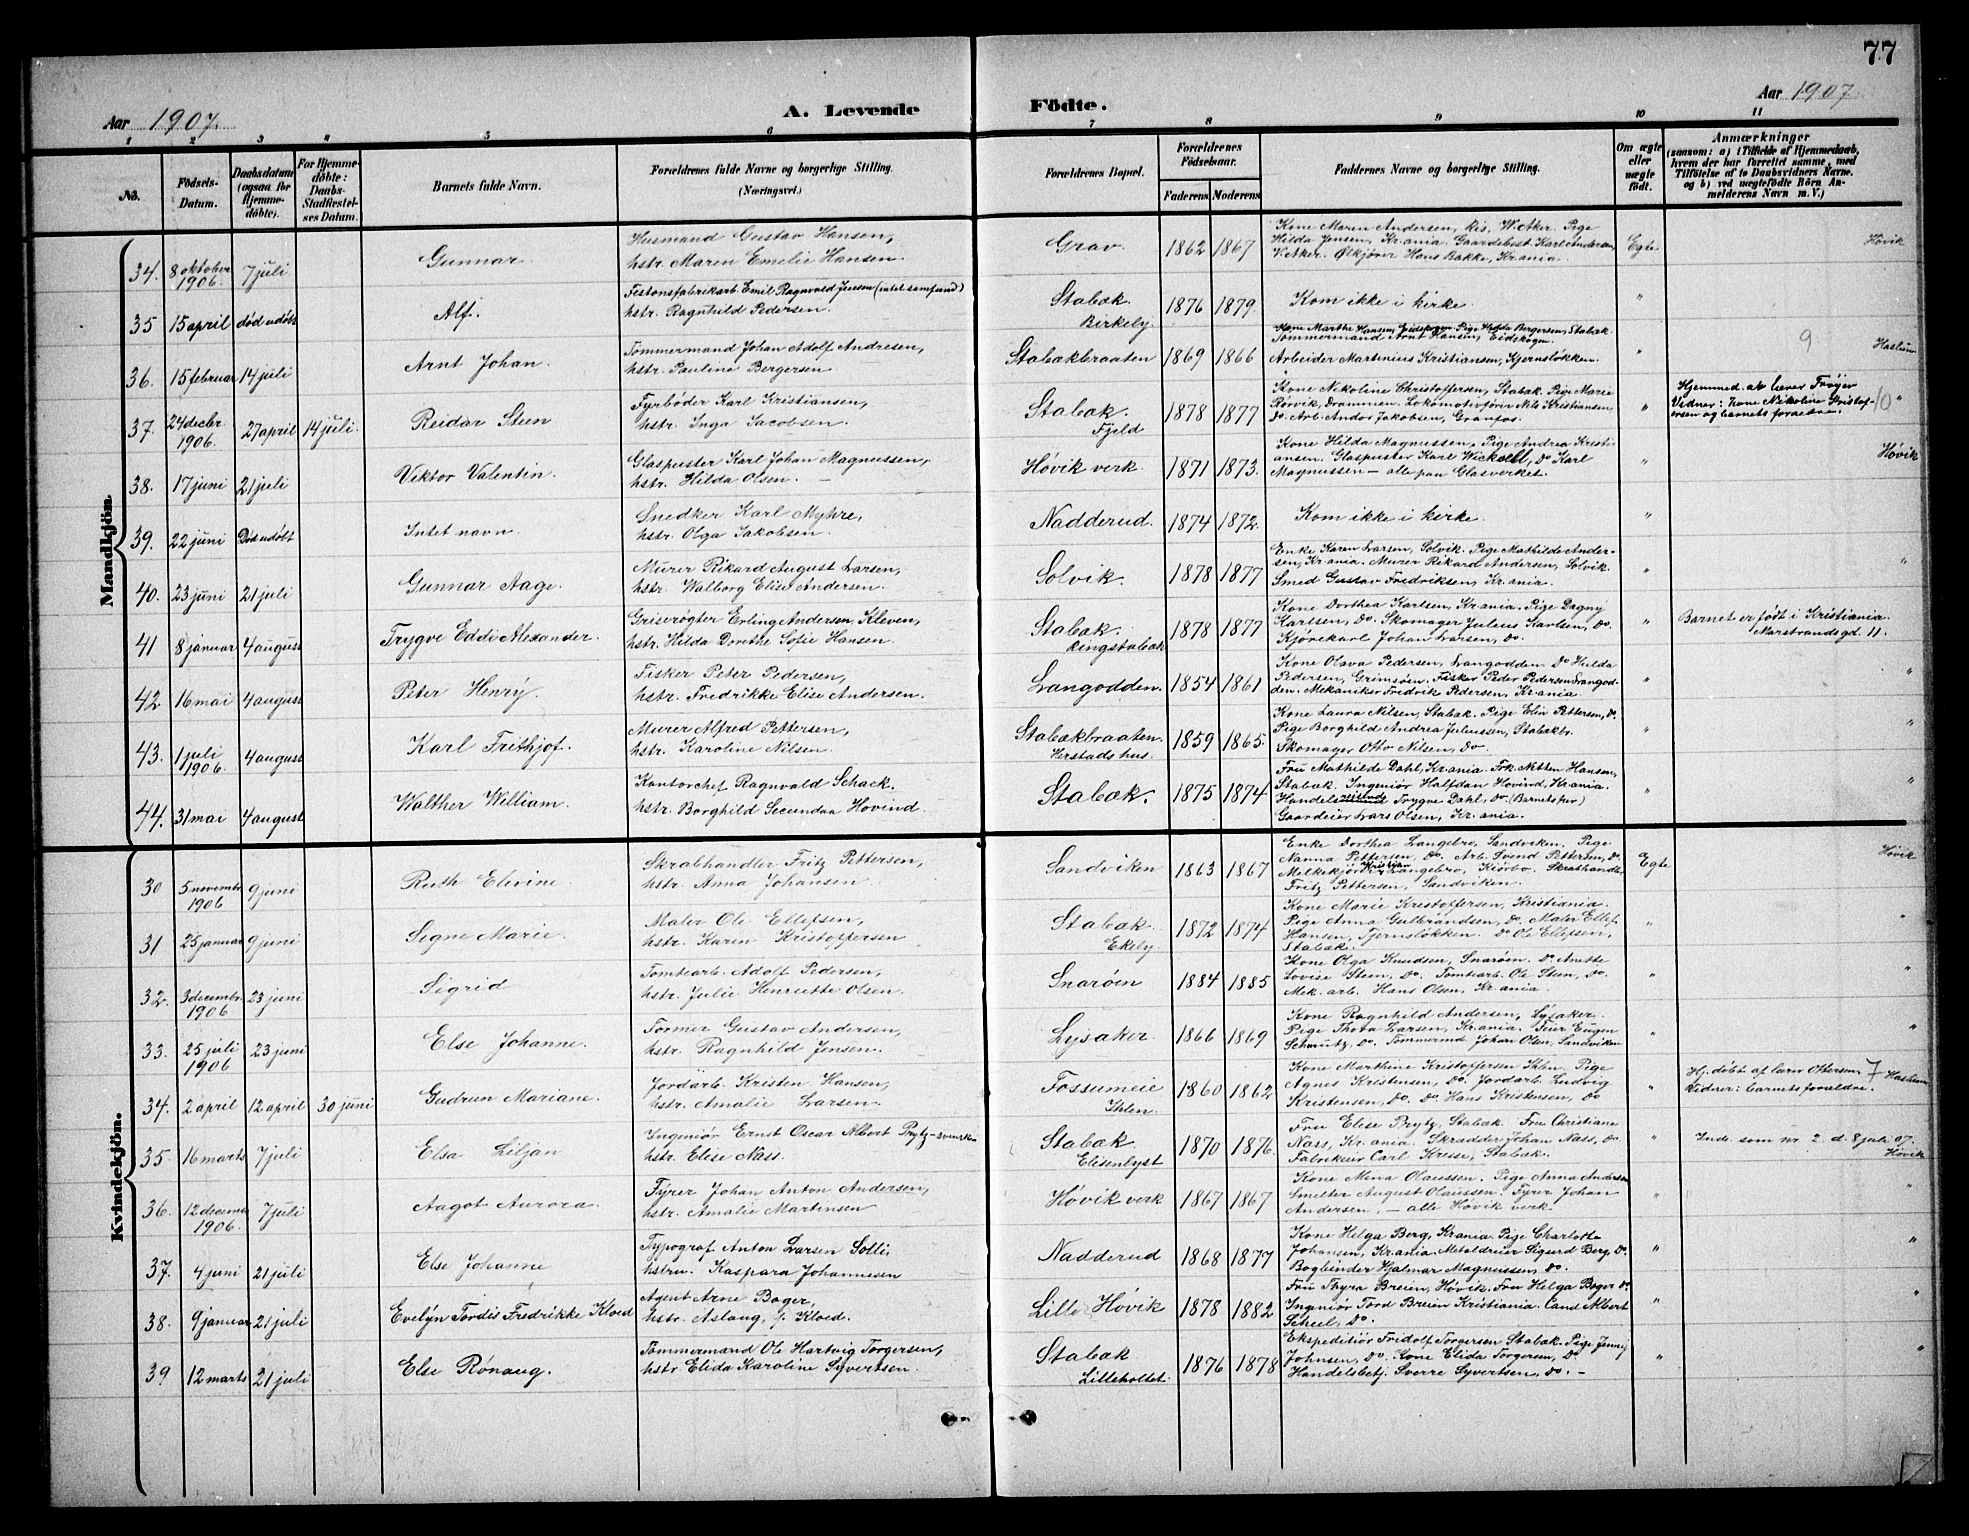 77
Aar 1907.
A. Levende
Födte.
Aar 1907
1 2 3 4 5 6 7 8 9 10 11
No.
Födsels-Datum.
Daabsdatum (ogsaa for Hjemme-döbte).
For Hjemme-döbte: Daabs-Stadfæstel-ses Datum.
Barnets fulde Navn.
Forældrenes fulde Navne og borgerlige Stilling.
(Næringsvei.)
Forældrenes Bopæl.
Forældrenes Födselsaar.
Faderens. Moderens.
Faddernes Navne og borgerlige Stilling.
Om ægte eller uægte födt.
Anmærkninger
(saasom: a) i Tilfælde af Hjemmedaab, hvem der har forrettet samme, med Tilföielse af to Daabsvidners Navne. og b) ved uægtefödte Börn An-melderens Navn m. V.)
Mandkjön.
34. 8 oktober 1906. 7 juli Gunnar.
Husmand Gustav Hansen,
hstr. Maren Emelie Hansen.
Grav. 1862 1867
Kone Maren Andersen, Pige
Hilda Jensen, Kr.ania. Gaardsbest. Karl Andersen,
Vækker. Ølkjører Hans Bakke, Kr.ania.
Egte
Høvik
35 15 april død udøbt Alf.
Festonsfabrikarb. Emil Ragnvald Jenson (intet samfund)
hstr. Ragnhild Pedersen.
Stabæk. Birkely. 1876 1879.
Kom ikke i kirke.
36. 15 februar 14 juli Arnt Johan.
Tømmermand Johan Adolf Andresen,
hstr. Pauline Bergersen
Stabækbraaten 1869 1866
Kone Marthe Hansen, Eidskogen. Pige Hilda Bergersen, Stabæk.
Tømmermand Arnt Hansen, Eidskogn.
Arbeider Martinius Kristiansen, Kjernsløkken.
9
Haslum
37. 24 decbr. 1906. 27 april 14 juli. Reidar Steen
Fyrbøder Karl Kristiansen,
hstr. Inga Jacobsen.
Stabæk. Fjeld 1878 1877
Kone Nikoline Christoffersen, Stabæk. Pige Marie
Rørvik, Drammen. Lokomotivfører Nils Kristiansen
Do. Arb. Andor Jakobsen, Granfos.
Hjemmed. ab lærer Frøyer
Vidner: kone Nikoline Kristof-
ersen og barnets forældre.
10
38. 17 juni 21 juli Viktor Valentin.
Glaspuster Karl Johan Magnussen,
hstr. Hilda Olsen.
Høvik verk 1871 1873.
Kone Hilda Magnussen, Pige Andrea Kristi-
ansen. Glaspuster Karl Wickvell, Do Karl
Magnussen — alle paa Glasverket.
Høvik
39. 22 juni Død udøbt Intet navn
Snedker Karl Myhre,
hstr. Olga Jakobsen.
Nadderud. 1874 1872.
Kom ikke i kirke.
40. 23 juni 21 juli Gunnar Aage.
Murer Rikard August Larsen,
hstr. Walborg Elise Andersen.
Solvik. 1878 1877
Enke Karen Larsen, Solvik. Pige Mathilde Ander-
sen, Kr.ania. Murer Rikard Andersen, Solvik.
Smed Gustav Fredriksen, Kr.ania.
41 8 januar 4 august Trygve Eddi Alexander.
Griserøgter Erling Andersen Kleven,
hstr. Hilda Dorthe Sofie Hansen.
Stabæk. Ringstabæk 1878 1877
Kone Dorthea Karlsen, Kr.ania. Pige Dagny
Karlsen, Do. Skomager Julius Karlsen, Do.
Kjørekarl Johan Larsen, Do.
Barnet er født i Kristiania
Marstrandsgd. 11.
42 16 mai 4 august Peter Henry.
Fisker Peter Pedersen,
hstr. Fredrikke Elise Andersen.
Langodden. 1854 1861
Kone Olava Pedersen, Langodden Do Hulda
Pedersen, Grimsøen. Fisker Peder Pedersen Langod-
den. Mekaniker Fredrik Pedersen, Kr.ania
43. 1 juli 1906 4 august Karl Frithjof.
Murer Alfred Pettersen,
hstr. Karoline Nilsen.
Stabækbraaten. Herstads hus. 1859 1865.
Kone Laura Nilsen, Stabæk. Pige Elin Pettersen, Do.
Pige Borghild Andrea Juliussen, Stabækbr.
Skomager Otto Nilsen, Do.
44. 31 mai 4 august Walther William.
Kontorchef Ragnvald Schack.
hstr. Borghild Secundaa Hovind.
Stabæk. 1875 1874
Fru Mathilde Dahl, Kr.ania. Frk. Netten Hansen,
Stabæk. Ingeniør Halfdan Hovind, Kr.ania.
Handelsreisende Trygve Dahl, Do (Barnets far)
Gaardeier Lars Olsen, Kr.ania.
Kvindekjön.
30 5 novembr. 1906 9 juni Ruth Elevine.
Skrabhandler Fritz Pettersen,
hstr. Anna Johansen.
Sandviken 1863 1867
Enke Dorthea Langebro, Sandviken. Pige
Nanna Pettersen, Do. Arb. Svend Pettersen, Do.
Melkekjører Kristian Langebro, Kiørbo. Skrabhandler
Fritz Pettersen, Sandviken.
Egte
Høvik
31 25 januar 9 juni Signe Marie.
Maler Ole Ellefsen,
hstr. Karen Kristoffersen
Stabæk Ekely. 1872 1874
Kone Marie Kristoffersen, Kristiania.
Pige Anna Gulbrandsen, Do. Maler Ellef
Hansen, Tjernsløkken. Do Ole Ellefsen,
Stabæk.
32. 3 decembr. 1906 23 juni Sigrid
Tomtearb. Adolf Pedersen,
hstr. Julie Henriette Olsen.
Snarøen 1884 1885
Kone Olga Knudsen, Snarøen. Do Anette
Lovise Steen, Do. Tomtearb. Ole Steen, Do.
Mek. arb. Hans Olsen, Kr.ania.
33. 25 juli 1906 23 juni Else Johanne.
Former Gustav Andersen,
hstr. Ragnhild Jensen.
Lysaker 1866 1869
Kone Ragnhild Andersen, Lysaker.
Pige Thora Larsen, Kr.ania. Feier Eugen
Schmutz, Do. Tømmermd. Johan Olsen, Sandviken
34. 2 april 12 april 30 juni Gudrun Mariane.
Jordarb. Kristen Hansen,
hstr. Amalie Larsen.
Fossumeie Ihlen. 1860 1862
Kone Marthine Kristoffersen Ihlen. Pige
Agnes Kristensen, Do. Jordarb. Ludvig
Kristensen, Do. Do. Hans Kristensen, Do
Hj. døbt af lærer Ottersen
Vidner: barnets forældre.
7
Haslum
35. 16 marts 7 juli Elsa Liljan
Ingeniør Ernst Oscar Albert Prytz — svensk
hstr. Elise Nass.
Stabæk Elisenlyst 1870 1876.
Fru Elise Prytz, Stabæk. Fru Christiane
Nass, Kr.ania. Skrædder Johan Nass, Do.
Fabrikeier Carl Kresse, Stabæk.
Ind. som nr. 2. d. 8 juli 07.
Høvik
36. 12 decembr 1906. 7 juli Aagot Aurora.
Fyrer Johan Anton Andersen,
hstr. Amalie Martinsen
Høvik verk 1867 1867
Kone Mina Olaussen. Pige Anna Andersen
Smelter August Olaussen. Fyrer Johan
Andersen, — alle Høvik verk.
37. 4 juni 21 juli Else Johanne
Typograf Anton Larsen Solli
hstru. Kaspara Johannesen
Nadderud 1868 1877
Kone Helga Berg, Kr.ania. Pige Charlotte
Johansen, Kr.ania. Metaldreier Sigurd Berg, Do.
Bogbinder Hjalmar Magnussen, Do.
38. 9 januar 21 juli Evelyn Tordis Fredrikke Kloed
Agent Arne Boger,
hstr. Aslaug, f. Kloed.
Lille Høvik 1878 1882
Fru Thyra Breien, Høvik. Fru Helga Boger Do.
Ingeniør Tord Breien Kristiania. Cand Albert
Scheel, Do.
39 12 marts 21 juli Else Rønaug.
Tømmermand Ole Hartvig Torgersen,
hstr Elida Karoline Syvertsen.
Stabæk Lilleholtet. 1876 1878
Ekspeditiør Fridolf Torgersen Stabæk. Pige Jenny
Johnsen, Do. Kone Elida Torgersen, Do
Handelsbetj. Sverre Syvertsen, Do. —